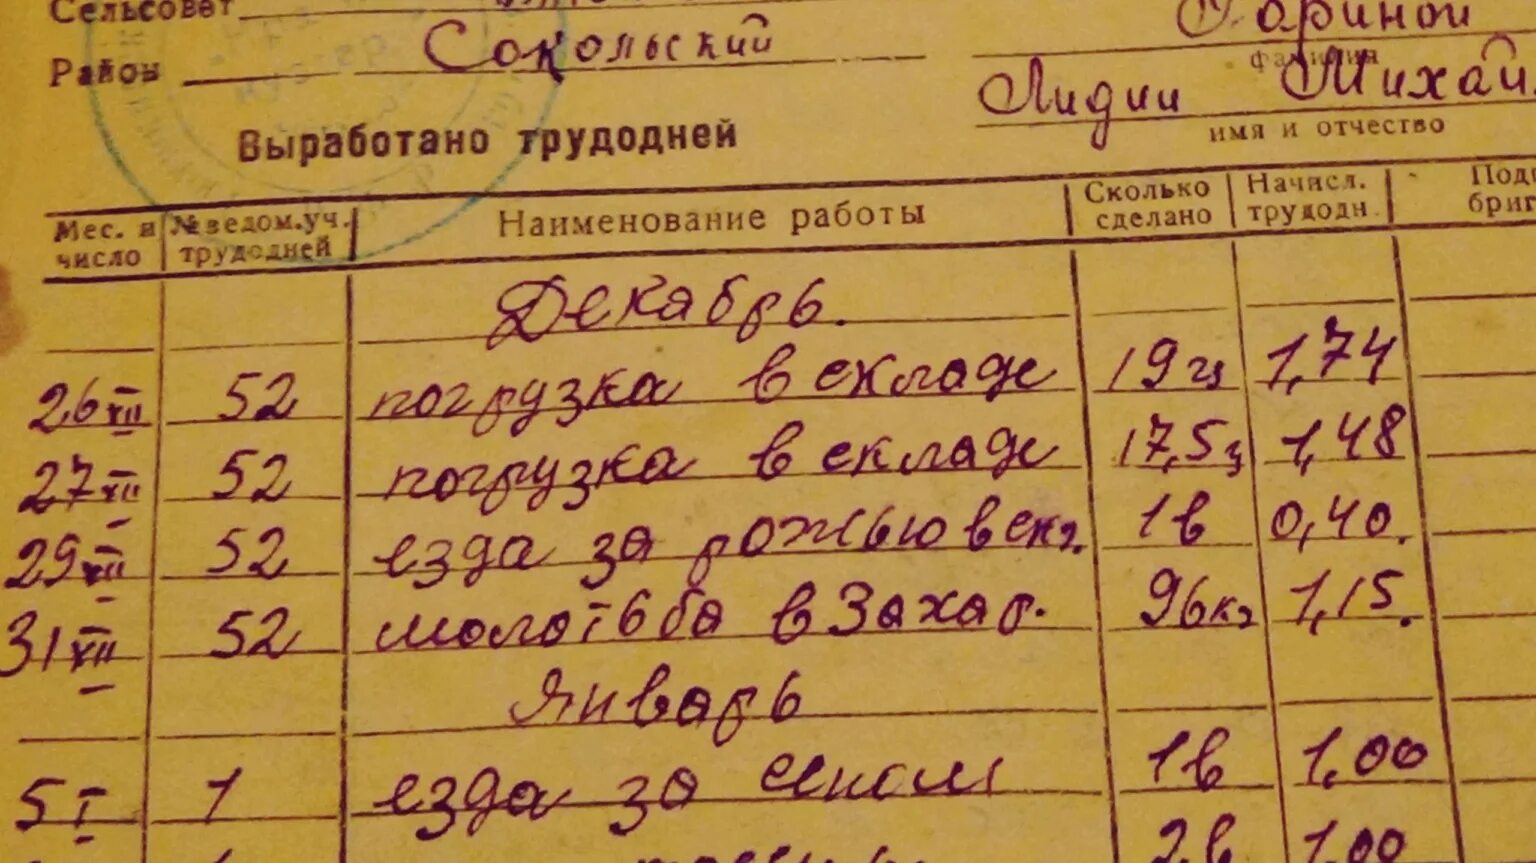 Сельсовет
Район Сокольский
фамилия
Лидии Михай
имя и отчество
Выработано трудодней
Мес. и число № ведом.уч. трудодней Наименование работы Сколько сделано Начисл. трудодн. Под бриг
Декабрь.
26 XII 52 погрузка в складе 19 ц 1,74
27 XII 52 погрузка в складе 17,5 ц 1,48
29 XII 52 езда за рожью в скл. 1в 0,40.
31 XII 52 молотьба в Захар. 96кг 1,15.
Январь
5 I 1 езда за сеном 1в 1,00
2в 1,00